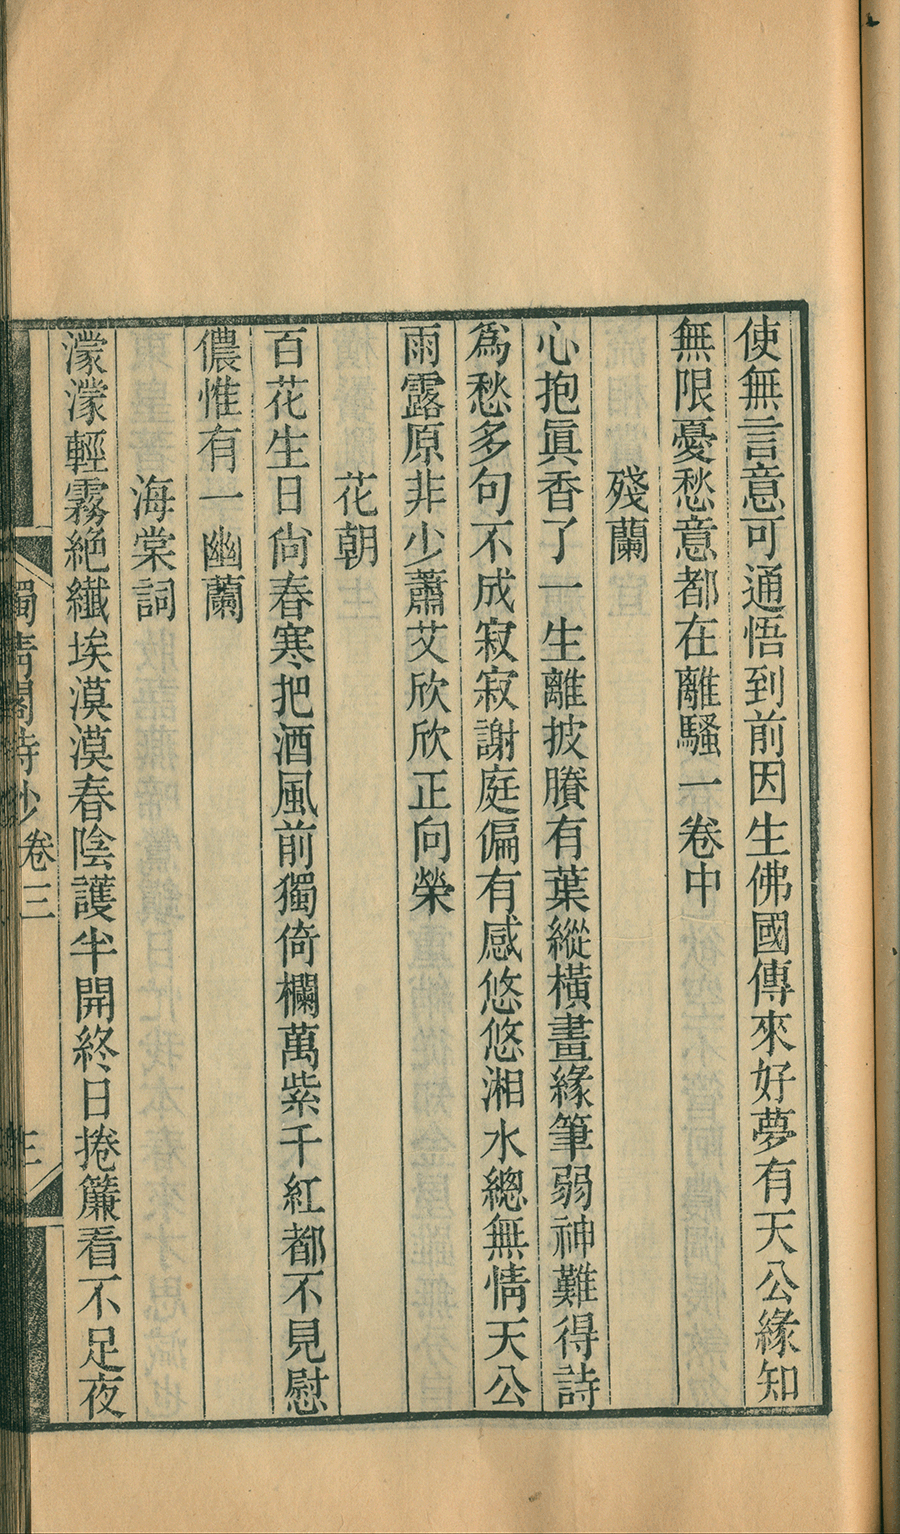 使無言意可通悟到前因生佛國傳來好夢有天公緣知
無限憂愁意都在離騷一卷中
殘蘭
心抱眞香了一生離披賸有葉縱橫畫緣筆弱神難得詩
爲愁多句不成寂寂謝庭偏有感悠悠湘水總無情天公
雨露原非少蕭艾欣欣正向榮
花朝
百花生日尙春寒把酒風前獨倚欄萬紫千紅都不見慰
儂惟有一幽蘭
海棠詞
濛濛輕霧絶纖埃漠漠春陰護半開終日捲簾看不足夜
獨清閣詩鈔卷三
三